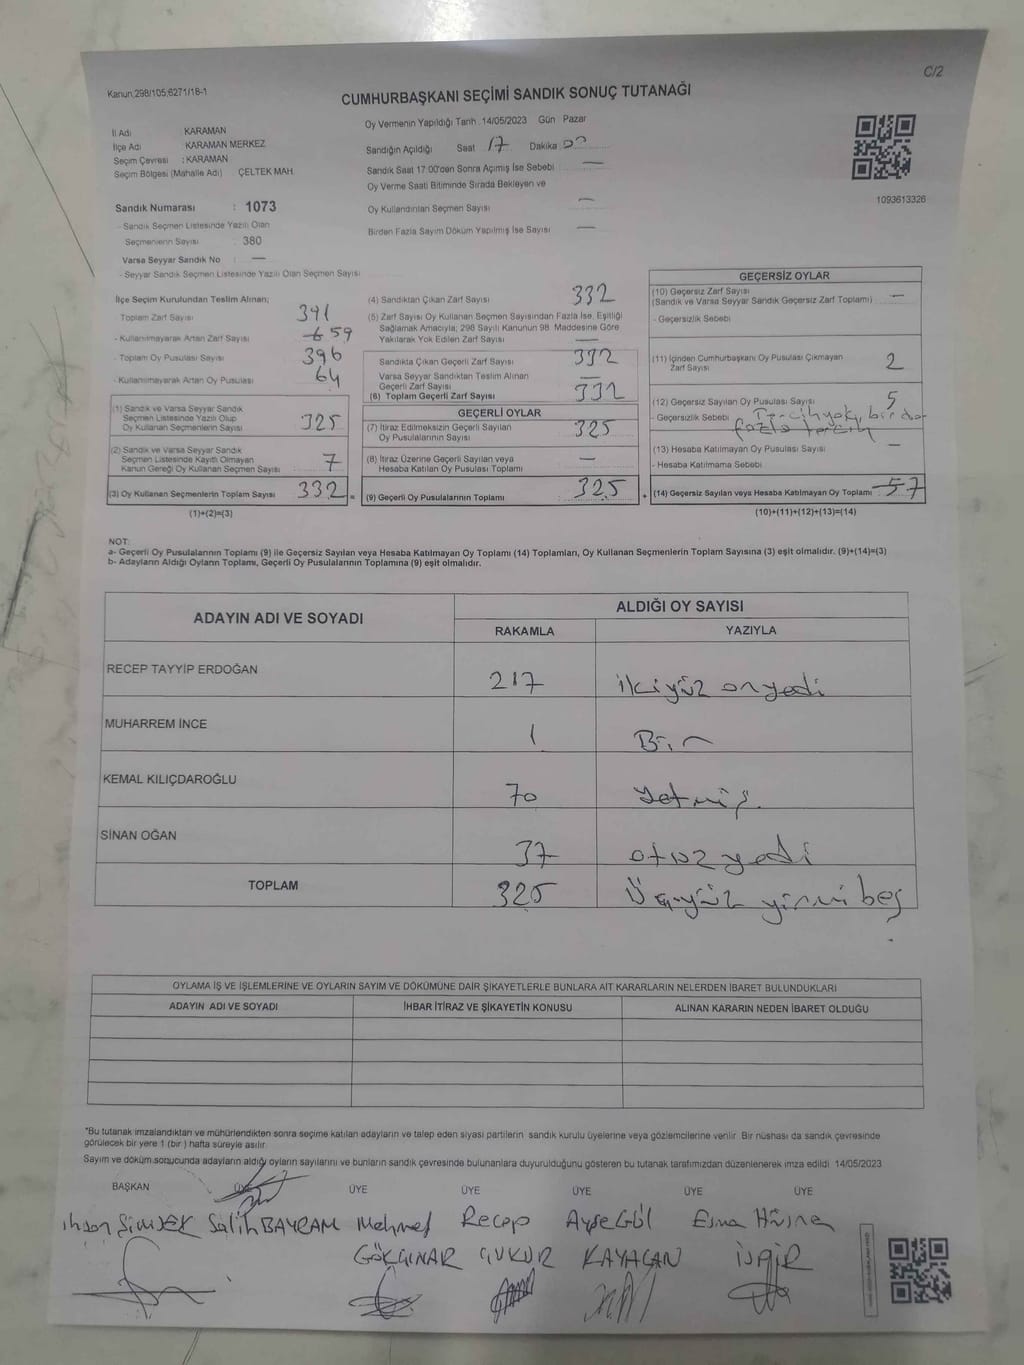 C/2
Kanun,298/105;6271/18-1
CUMHURBAŞKANI SEÇİMİ SANDIK SONUÇ TUTANAĞI
İl Adı KARAMAN
İlçe Adı KARAMAN MERKEZ
Seçim Çevresi : KARAMAN
Seçim Bölgesi (Mahalle Adı) ÇELTEK MAH.
Sandık Numarası : 1073
- Sandık Seçmen Listesinde Yazılı Olan
Seçmenlerin Sayısı : 380
Varsa Seyyar Sandık No : —
- Seyyar Sandık Seçmen Listesinde Yazılı Olan Seçmen Sayısı
Oy Vermenin Yapıldığı Tarih :14/05/2023 Gün Pazar
Sandığın Açıldığı Saat 17 Dakika
Sandık Saat 17:00'den Sonra Açımış İse Sebebi —
Oy Verme Saati Bitiminde Sırada Bekleyen ve
Oy Kullandırılan Seçmen Sayısı —
Birden Fazla Sayım Döküm Yapılmış İse Sayısı —
1093613326
İlçe Seçim Kurulundan Teslim Alınan;
Toplam Zarf Sayısı 391
- Kullanılmayarak Artan Zarf Sayısı 59
- Toplam Oy Pusulası Sayısı 396
- Kullanılmayarak Artan Oy Pusulası 64
(1) Sandık ve Varsa Seyyar Sandık
Seçmen Listesinde Yazılı Olup
Oy Kullanan Seçmenlerin Sayısı 325
(2) Sandık ve Varsa Seyyar Sandık
Seçmen Listesinde Kayıtlı Olmayan
Kanun Gereği Oy Kullanan Seçmen Sayısı 7
(3) Oy Kullanan Seçmenlerin Toplam Sayısı 332 =
(1)+(2)=(3)
(4) Sandıktan Çıkan Zarf Sayısı 332
(5) Zarf Sayısı Oy Kullanan Seçmen Sayısından Fazla İse, Eşitliği
Sağlamak Amacıyla; 298 Sayılı Kanunun 98. Maddesine Göre
Yakılarak Yok Edilen Zarf Sayısı —
Sandıkta Çıkan Geçerli Zarf Sayısı 332
Varsa Seyyar Sandıktan Teslim Alınan
Geçerli Zarf Sayısı —
(6) Toplam Geçerli Zarf Sayısı 332
GEÇERLİ OYLAR
(7) İtiraz Edilmeksizin Geçerli Sayılan
Oy Pusulalarının Sayısı 325
(8) İtiraz Üzerine Geçerli Sayılan veya
Hesaba Katılan Oy Pusulası Toplamı —
(9) Geçerli Oy Pusulalarının Toplamı 325 +
GEÇERSİZ OYLAR
(10) Geçersiz Zarf Sayısı
(Sandık ve Varsa Seyyar Sandık Geçersiz Zarf Toplamı) —
- Geçersizlik Sebebi
(11) İçinden Cumhurbaşkanı Oy Pusulası Çıkmayan
Zarf Sayısı 2
(12) Geçersiz Sayılan Oy Pusulası Sayısı 5
- Geçersizlik Sebebi Tercih yok, birden
fazla tercih
(13) Hesaba Katılmayan Oy Pusulası Sayısı —
- Hesaba Katılmama Sebebi
(14) Geçersiz Sayılan veya Hesaba Katılmayan Oy Toplamı : 5 7
(10)+(11)+(12)+(13)=(14)
NOT:
a- Geçerli Oy Pusulalarının Toplamı (9) ile Geçersiz Sayılan veya Hesaba Katılmayan Oy Toplamı (14) Toplamları, Oy Kullanan Seçmenlerin Toplam Sayısına (3) eşit olmalıdır. (9)+(14)=(3)
b- Adayların Aldığı Oyların Toplamı, Geçerli Oy Pusulalarının Toplamına (9) eşit olmalıdır.
ADAYIN ADI VE SOYADI
ALDIĞI OY SAYISI
RAKAMLA YAZIYLA
RECEP TAYYİP ERDOĞAN 217 ikiyüz onyedi
MUHARREM İNCE 1 Bir
KEMAL KILIÇDAROĞLU 70 Yetmiş.
SİNAN OĞAN 37 otuz yedi
TOPLAM 325 Üçyüz yirmi beş
OYLAMA İŞ VE İŞLEMLERİNE VE OYLARIN SAYIM VE DÖKÜMÜNE DAİR ŞİKAYETLERLE BUNLARA AİT KARARLARIN NELERDEN İBARET BULUNDUKLARI
ADAYIN ADI VE SOYADI İHBAR İTİRAZ VE ŞİKAYETİN KONUSU ALINAN KARARIN NEDEN İBARET OLDUĞU
*Bu tutanak imzalandıktan ve mühürlendikten sonra seçime katılan adayların ve talep eden siyasi partilerin sandık kurulu üyelerine veya gözlemcilerine verilir. Bir nüshası da sandık çevresinde
görülecek bir yere 1 (bir ) hafta süreyle asılır.
Sayım ve döküm sonucunda adayların aldığı oyların sayılarını ve bunların sandık çevresinde bulunanlara duyurulduğunu gösteren bu tutanak tarafımızdan düzenlenerek imza edildi 14/05/2023
BAŞKAN ÜYE ÜYE ÜYE ÜYE ÜYE ÜYE
ihsan ŞİMŞEK Salih BAYRAM Mehmet Recep Ayşe Gül Esma Hüsna
GÖKÇINAR ÇUKUR KAYAÇAN